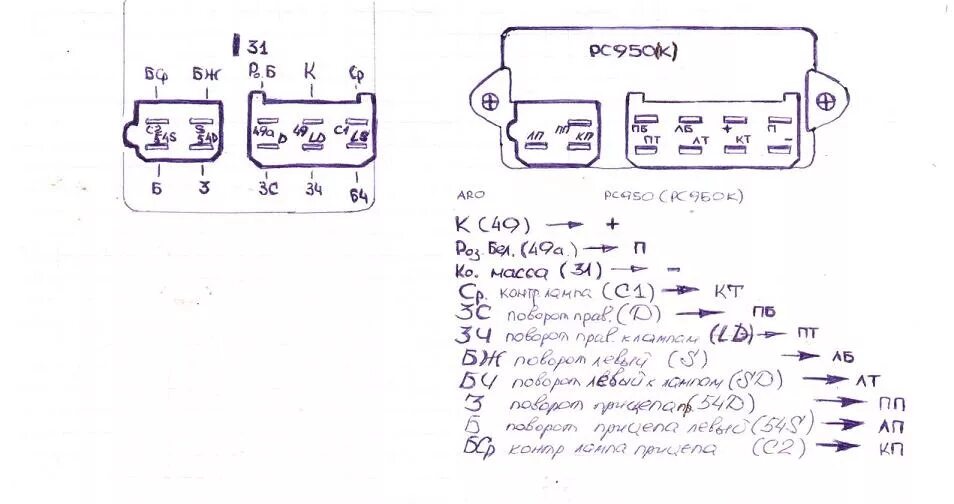 31
БФ БЖ Ро.Б К Ср
C2 S 49а 49 C1
54S 54D D LD LS
Б З ЗС ЗЧ БЧ
РС950(К)
ПП ПБ ЛБ + П
ЛП КП ПТ ЛТ КТ -
ARO РС950(РС950К)
К (49) → +
Роз.Бел.(49а.) → П
Ко. масса (31) → -
Ср. контр лампа (С1) → КТ
ЗС поворот прав.(D) → ПБ
ЗЧ поворот прав. к лампам (LD) → ПТ
БЖ поворот левый (S) → ЛБ
БЧ поворот левый к лампам (SD) → ЛТ
З поворот прицепа пр.(54D) → ПП
Б поворот прицепа левый (54S) → ЛП
БФ контр лампа прицепа (С2) → КП